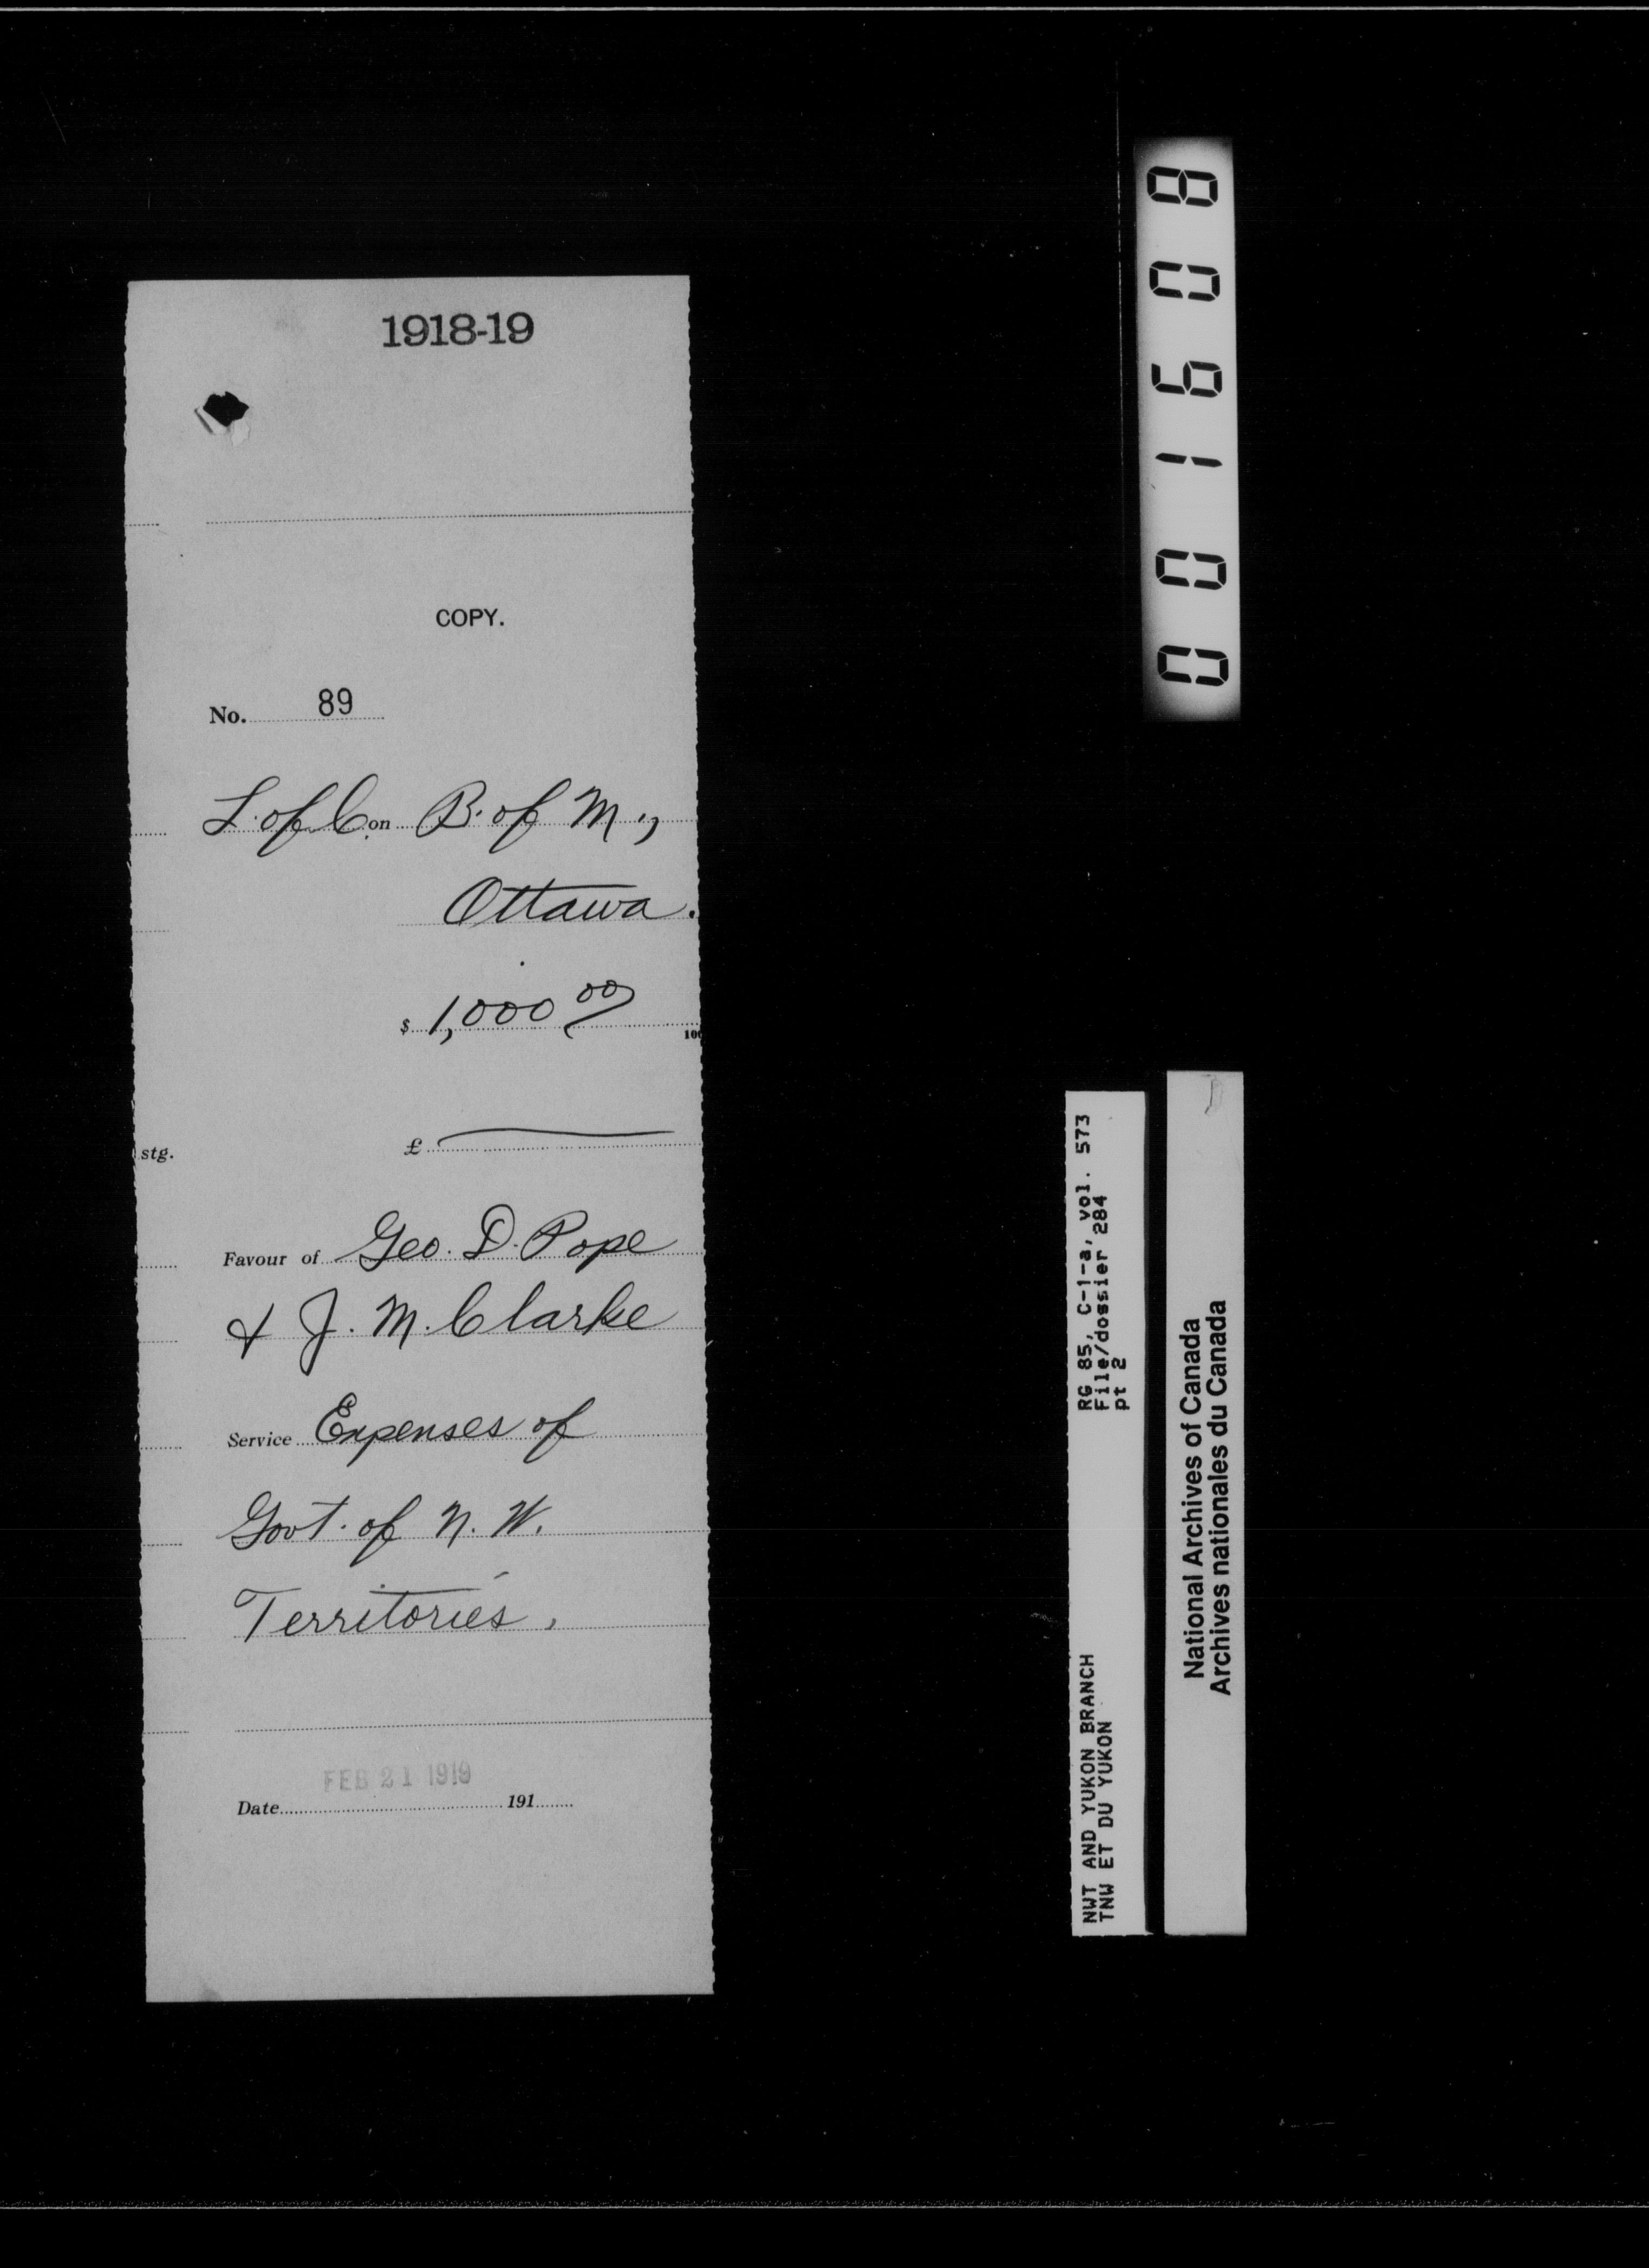 1918-19
COPY.
No. 89
L. of C. on B. of M.,
Ottawa.
$ 1,000 00
100
stg. £
Favour of Geo. D. Pope
& J. M. Clarke
Service Expenses of
Govt. of N. W.
Territories.
FEB 21 1919
Date 191
001608
RG 85, C-1-a, vol. 573
File/dossier 284
pt 2
NWT AND YUKON BRANCH
TNW ET DU YUKON
National Archives of Canada
Archives nationales du Canada